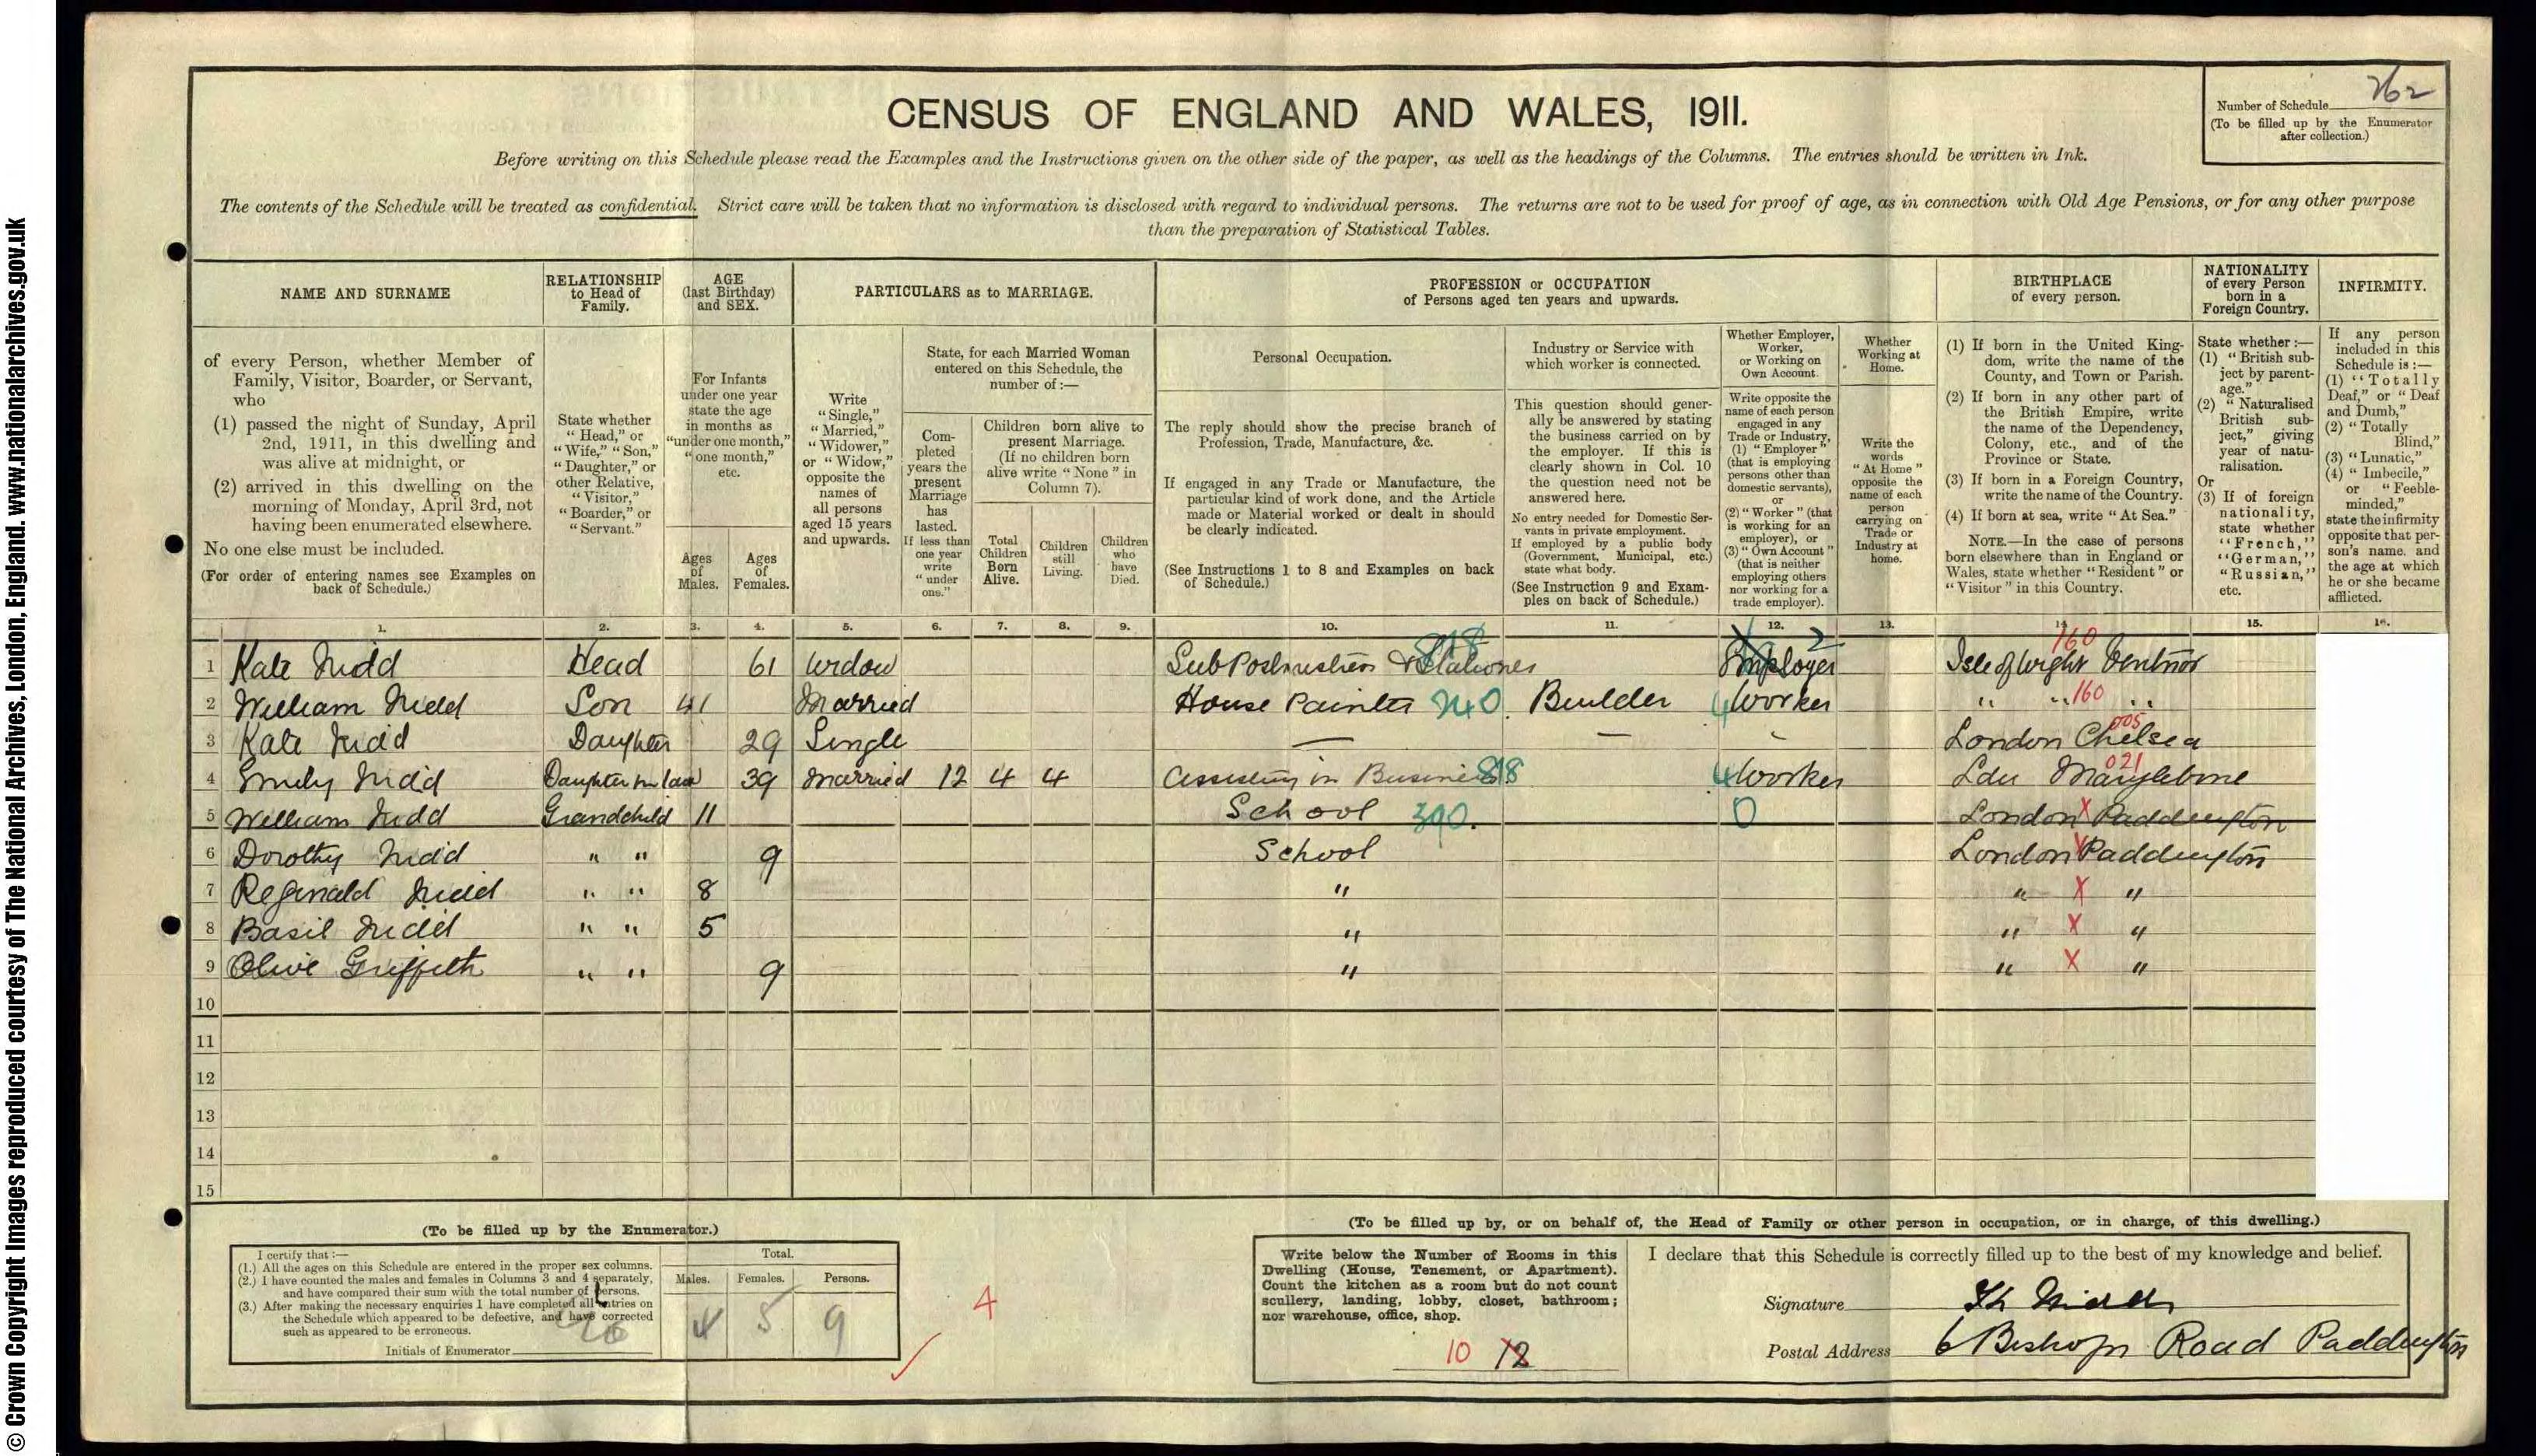 © Crown Copyright Images reproduced courtesy of The National Archives, London, England. www.nationalarchives.gov.uk
CENSUS OF ENGLAND AND WALES, 1911.
Number of Schedule 262
(To be filled up by the Enumerator
after collection.)
Before writing on this Schedule please read the Examples and the Instructions given on the other side of the paper, as well as the headings of the Columns. The entries should be written in Ink.
The contents of the Schedule will be treated as confidential. Strict care will be taken that no information is disclosed with regard to individual persons. The returns are not to be used for proof of age, as in connection with Old Age Pensions, or for any other purpose
than the preparation of Statistical Tables.
NAME AND SURNAME
of every Person, whether Member of
Family, Visitor, Boarder, or Servant,
who
(1) passed the night of Sunday, April
2nd, 1911, in this dwelling and
was alive at midnight, or
(2) arrived in this dwelling on the
morning of Monday, April 3rd, not
having been enumerated elsewhere.
No one else must be included.
(For order of entering names see Examples on
back of Schedule.)
RELATIONSHIP
to Head of
Family.
State whether
"Head," or
"Wife," "Son,"
"Daughter," or
other Relative,
"Visitor,"
"Boarder," or
"Servant."
AGE
(last Birthday)
and SEX.
For Infants
under one year
state the age
in months as
"under one month,"
"one month,"
etc.
Ages
of
Males.
Ages
of
Females.
PARTICULARS as to MARRIAGE.
Write
"Single,"
"Married,"
"Widower,"
or "Widow,"
opposite the
names of
all persons
aged 15 years
and upwards.
State, for each Married Woman
entered on this Schedule, the
number of:—
Com-
pleted
years the
present
Marriage
has
lasted.
If less than
one year
write
"under
one."
Children born alive to
present Marriage.
(If no children born
alive write "None" in
Column 7).
Total
Children
Born
Alive.
Children
still
Living.
Children
who
have
Died.
PROFESSION or OCCUPATION
of Persons aged ten years and upwards.
Personal Occupation.
The reply should show the precise branch of
Profession, Trade, Manufacture, &c.
If engaged in any Trade or Manufacture, the
particular kind of work done, and the Article
made or Material worked or dealt in should
be clearly indicated.
(See Instructions 1 to 8 and Examples on back
of Schedule.)
Industry or Service with
which worker is connected.
This question should gener-
ally be answered by stating
the business carried on by
the employer. If this is
clearly shown in Col. 10
the question need not be
answered here.
No entry needed for Domestic Ser-
vants in private employment.
If employed by a public body
(Government, Municipal, etc.)
state what body.
(See Instruction 9 and Exam-
ples on back of Schedule.)
Whether Employer,
Worker,
or Working on
Own Account.
Write opposite the
name of each person
engaged in any
Trade or Industry,
(1) "Employer"
(that is employing
persons other than
domestic servants),
or
(2) "Worker" (that
is working for an
employer), or
(3) "Own Account"
(that is neither
employing others
nor working for a
trade employer).
Whether
Working at
Home.
Write the
words
"At Home"
opposite the
name of each
person
carrying on
Trade or
Industry at
home.
BIRTHPLACE
of every person.
(1) If born in the United King-
dom, write the name of the
County, and Town or Parish.
(2) If born in any other part of
the British Empire, write
the name of the Dependency,
Colony, etc., and of the
Province or State.
(3) If born in a Foreign Country,
write the name of the Country.
(4) If born at sea, write "At Sea."
NOTE.—In the case of persons
born elsewhere than in England or
Wales, state whether "Resident" or
"Visitor" in this Country.
NATIONALITY
of every Person
born in a
Foreign Country.
State whether:—
(1) "British sub-
ject by parent-
age."
(2) "Naturalised
British sub-
ject," giving
year of natu-
ralisation.
Or
(3) If of foreign
nationality,
state whether
"French,"
"German,"
"Russian,"
etc.
INFIRMITY.
If any person
included in this
Schedule is:—
(1) "Totally
Deaf," or "Deaf
and Dumb,"
(2) "Totally
Blind,"
(3) "Lunatic,"
(4) "Imbecile,"
or "Feeble-
minded,"
state the infirmity
opposite that per-
son's name, and
the age at which
he or she became
afflicted.
1. 2. 3. 4. 5. 6. 7. 8. 9. 10. 11. 12. 13. 14. 15. 16.
1 Kate Nidd Head 61 Widow Sub Postmistress & Stationer 818 Employer 2 Isle of Wight Ventnor 160
2 William Nidd Son 41 Married House Painter 240 Builder 4 Worker " " 160 "
3 Kate Nidd Daughter 29 Single — — - London Chelsea 005
4 Emily Nidd Daughter in law 39 Married 12 4 4 Assisting in Business 818 4 Worker Ldn Marylebone 021
5 William Nidd Grandchild 11 School 390. 0 London X Paddington
6 Dorothy Nidd " " 9 School London X Paddington
7 Reginald Nidd " " 8 " " X "
8 Basil Nidd " " 5 " " X "
9 Olive Griffith " " 9 " " X "
10
11
12
13
14
15
(To be filled up by the Enumerator.)
I certify that:—
(1.) All the ages on this Schedule are entered in the proper sex columns.
(2.) I have counted the males and females in Columns 3 and 4 separately,
and have compared their sum with the total number of persons.
(3.) After making the necessary enquiries I have completed all entries on
the Schedule which appeared to be defective, and have corrected
such as appeared to be erroneous.
Initials of Enumerator
Total.
Males. Females. Persons.
4 5 9
4
(To be filled up by, or on behalf of, the Head of Family or other person in occupation, or in charge, of this dwelling.)
Write below the Number of Rooms in this
Dwelling (House, Tenement, or Apartment).
Count the kitchen as a room but do not count
scullery, landing, lobby, closet, bathroom;
nor warehouse, office, shop.
10 12
I declare that this Schedule is correctly filled up to the best of my knowledge and belief.
Signature K Nidd
Postal Address 6 Bishops Road Paddington